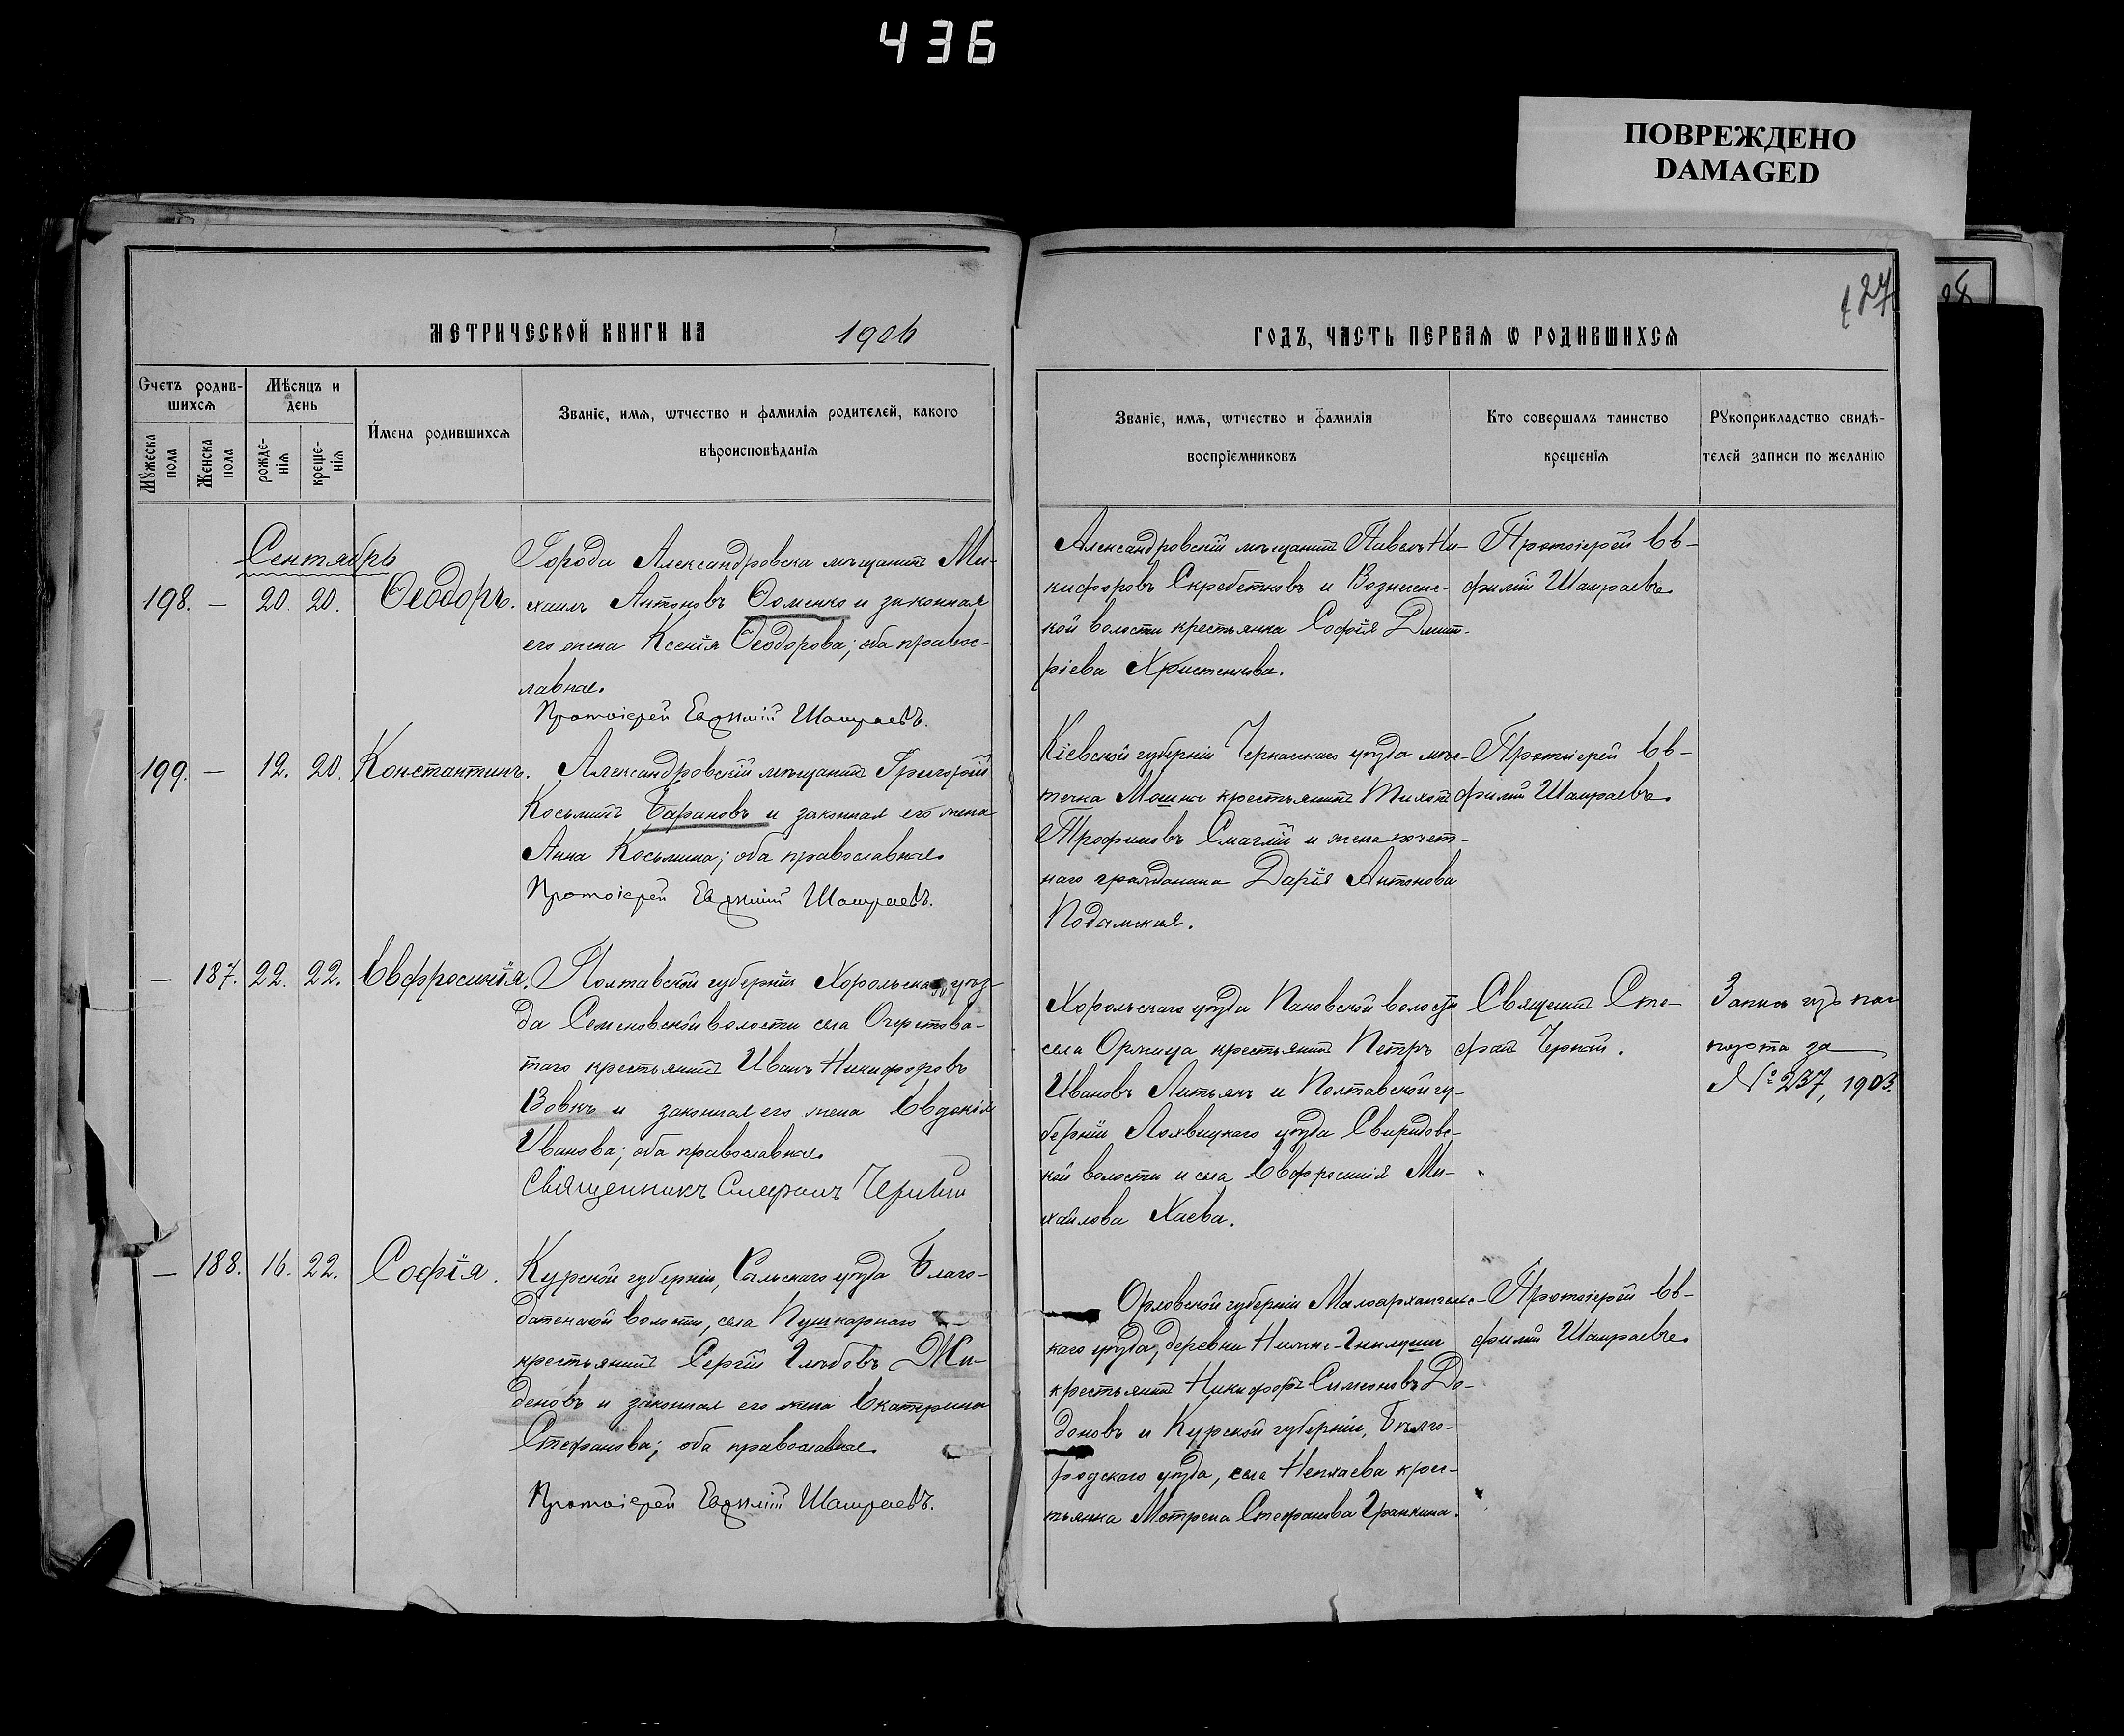 436
ПОВРЕЖДЕНО
DAMAGED
427
28
МЕТРИЧЕСКОЙ КНИГИ НА 1906
ГОДЪ, ЧАСТЬ ПЕРВАѦ Ѡ РОДИВШИХСѦ
Счетъ родив-
шихсѧ
Мѣсяцъ и
день
Мꙋжеска
пола
Женска
пола
рожде-
нїѧ
креще-
нїѧ
Имена родившихсѧ
Званїе, имѧ, ѡтчество и фамилїѧ родителей, какого
вѣроисповѣданїѧ
Званїе, имѧ, ѡтчество и фамилїѧ
воспрїемниковъ
Кто совершалъ таинство
крещенїѧ
Рꙋкоприкладство свидѣ-
телей записи по желанїю
Сентябрь
198. — 20. 20. Ѳеодоръ.
Города Александровска мѣщанинъ Ми-
хаилъ Антоновъ Ѳоменко и законная
его жена Ксенія Ѳеодорова; оба правос-
лавные.
Протоіерей Евѳимій Шатраевъ.
Александровскій мѣщанинъ Павелъ Ни-
кифоровъ Скребетковъ и Вознесенс-
кой волости крестьянка Софія Дмит-
ріева Христенкова.
Протоіерей Ев-
фимій Шатраевъ.
199. — 12. 20. Константинъ.
Александровскій мѣщанинъ Григорій
Косьминъ Барановъ и законная его жена
Анна Косьмина; оба православные.
Протоіерей Евѳимій Шатраевъ.
Кіевской губерніи Черкасскаго уѣзда мѣс-
течка Мошны крестьянинъ Тихонъ
Трофимовъ Смаглій и жена почет-
наго гражданина Дарія Антонова
Подамская.
Протоіерей Ев-
фимій Шатраевъ.
— 187. 22. 22. Евфросинія.
Полтавской губерніи Хорольскаго уѣз-
да Семеновской волости села Очеретова-
таго крестьянинъ Иванъ Никифоровъ
Вовкъ и законная его жена Евдокія
Иванова; оба православные.
Священникъ Стефанъ Черный
Хорольскаго уѣзда Пановской волости
села Оржица крестьянинъ Петръ
Ивановъ Литьякъ и Полтавской гу-
берніи Лохвицкаго уѣзда Свиридовс-
кой волости и села Евфросинія Ми-
хайлова Хаева.
Священ. Сте-
фанъ Черный.
Запись изъ пас-
порта за
№ 237, 1903.
— 188. 16. 22. Софія.
Курской губерніи, Сальскаго уѣзда Благо-
датенской волости, села Пушкарнаго
крестьянинъ Сергій Глѣбовъ Жи-
деновъ и законная его жена Екатерина
Стефанова; оба православные.
Протоіерей Евѳимій Шатраевъ.
Орловской губерніи Малоархангельс-
каго уѣзда, деревни Нижне-Гнилуши
крестьянинъ Никифоръ Симоновъ До-
доновъ и Курской губерніи, Бѣлго-
родскаго уѣзда, села Непхаева крес-
тьянка Мотрена Стефанова Гранкина.
Протоіерей Ев-
фимій Шатраевъ.